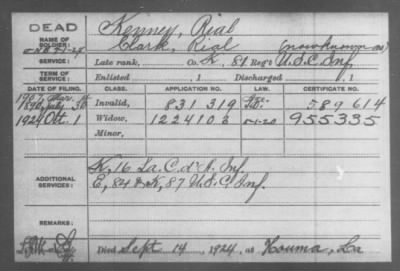 DEAD
NAME OF SOLDIER:
Kenney, Rial
Clark, Rial (now known as)
SERVICE: Late rank, Co. K, 81 Reg't U.S.C. Inf.
TERM OF SERVICE: Enlisted , 1 Discharged , 1
DATE OF FILING. CLASS. APPLICATION NO. LAW. CERTIFICATE NO.
1890, July 30 Invalid, 831 319 589 614
1924 Oct. 1 Widow, 1224103 5-1-20 955335
Minor,
ADDITIONAL SERVICES:
K, 16 La. C. d'A. Inf.
E, 84 & K, 87 U.S.C. Inf.
REMARKS:
Died Sept 14, 1924, at Houma, La